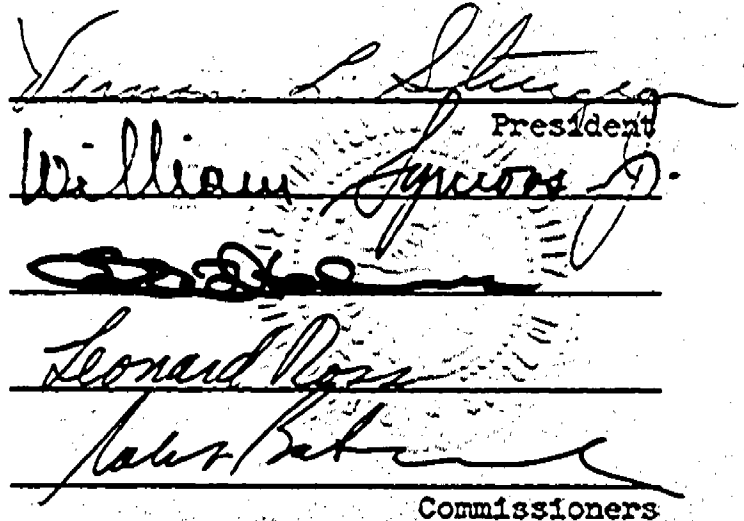 Vernon L. Sturgeon
President
William Symons Jr.
Leonard Ross
Robert Batinovich
Commissioners